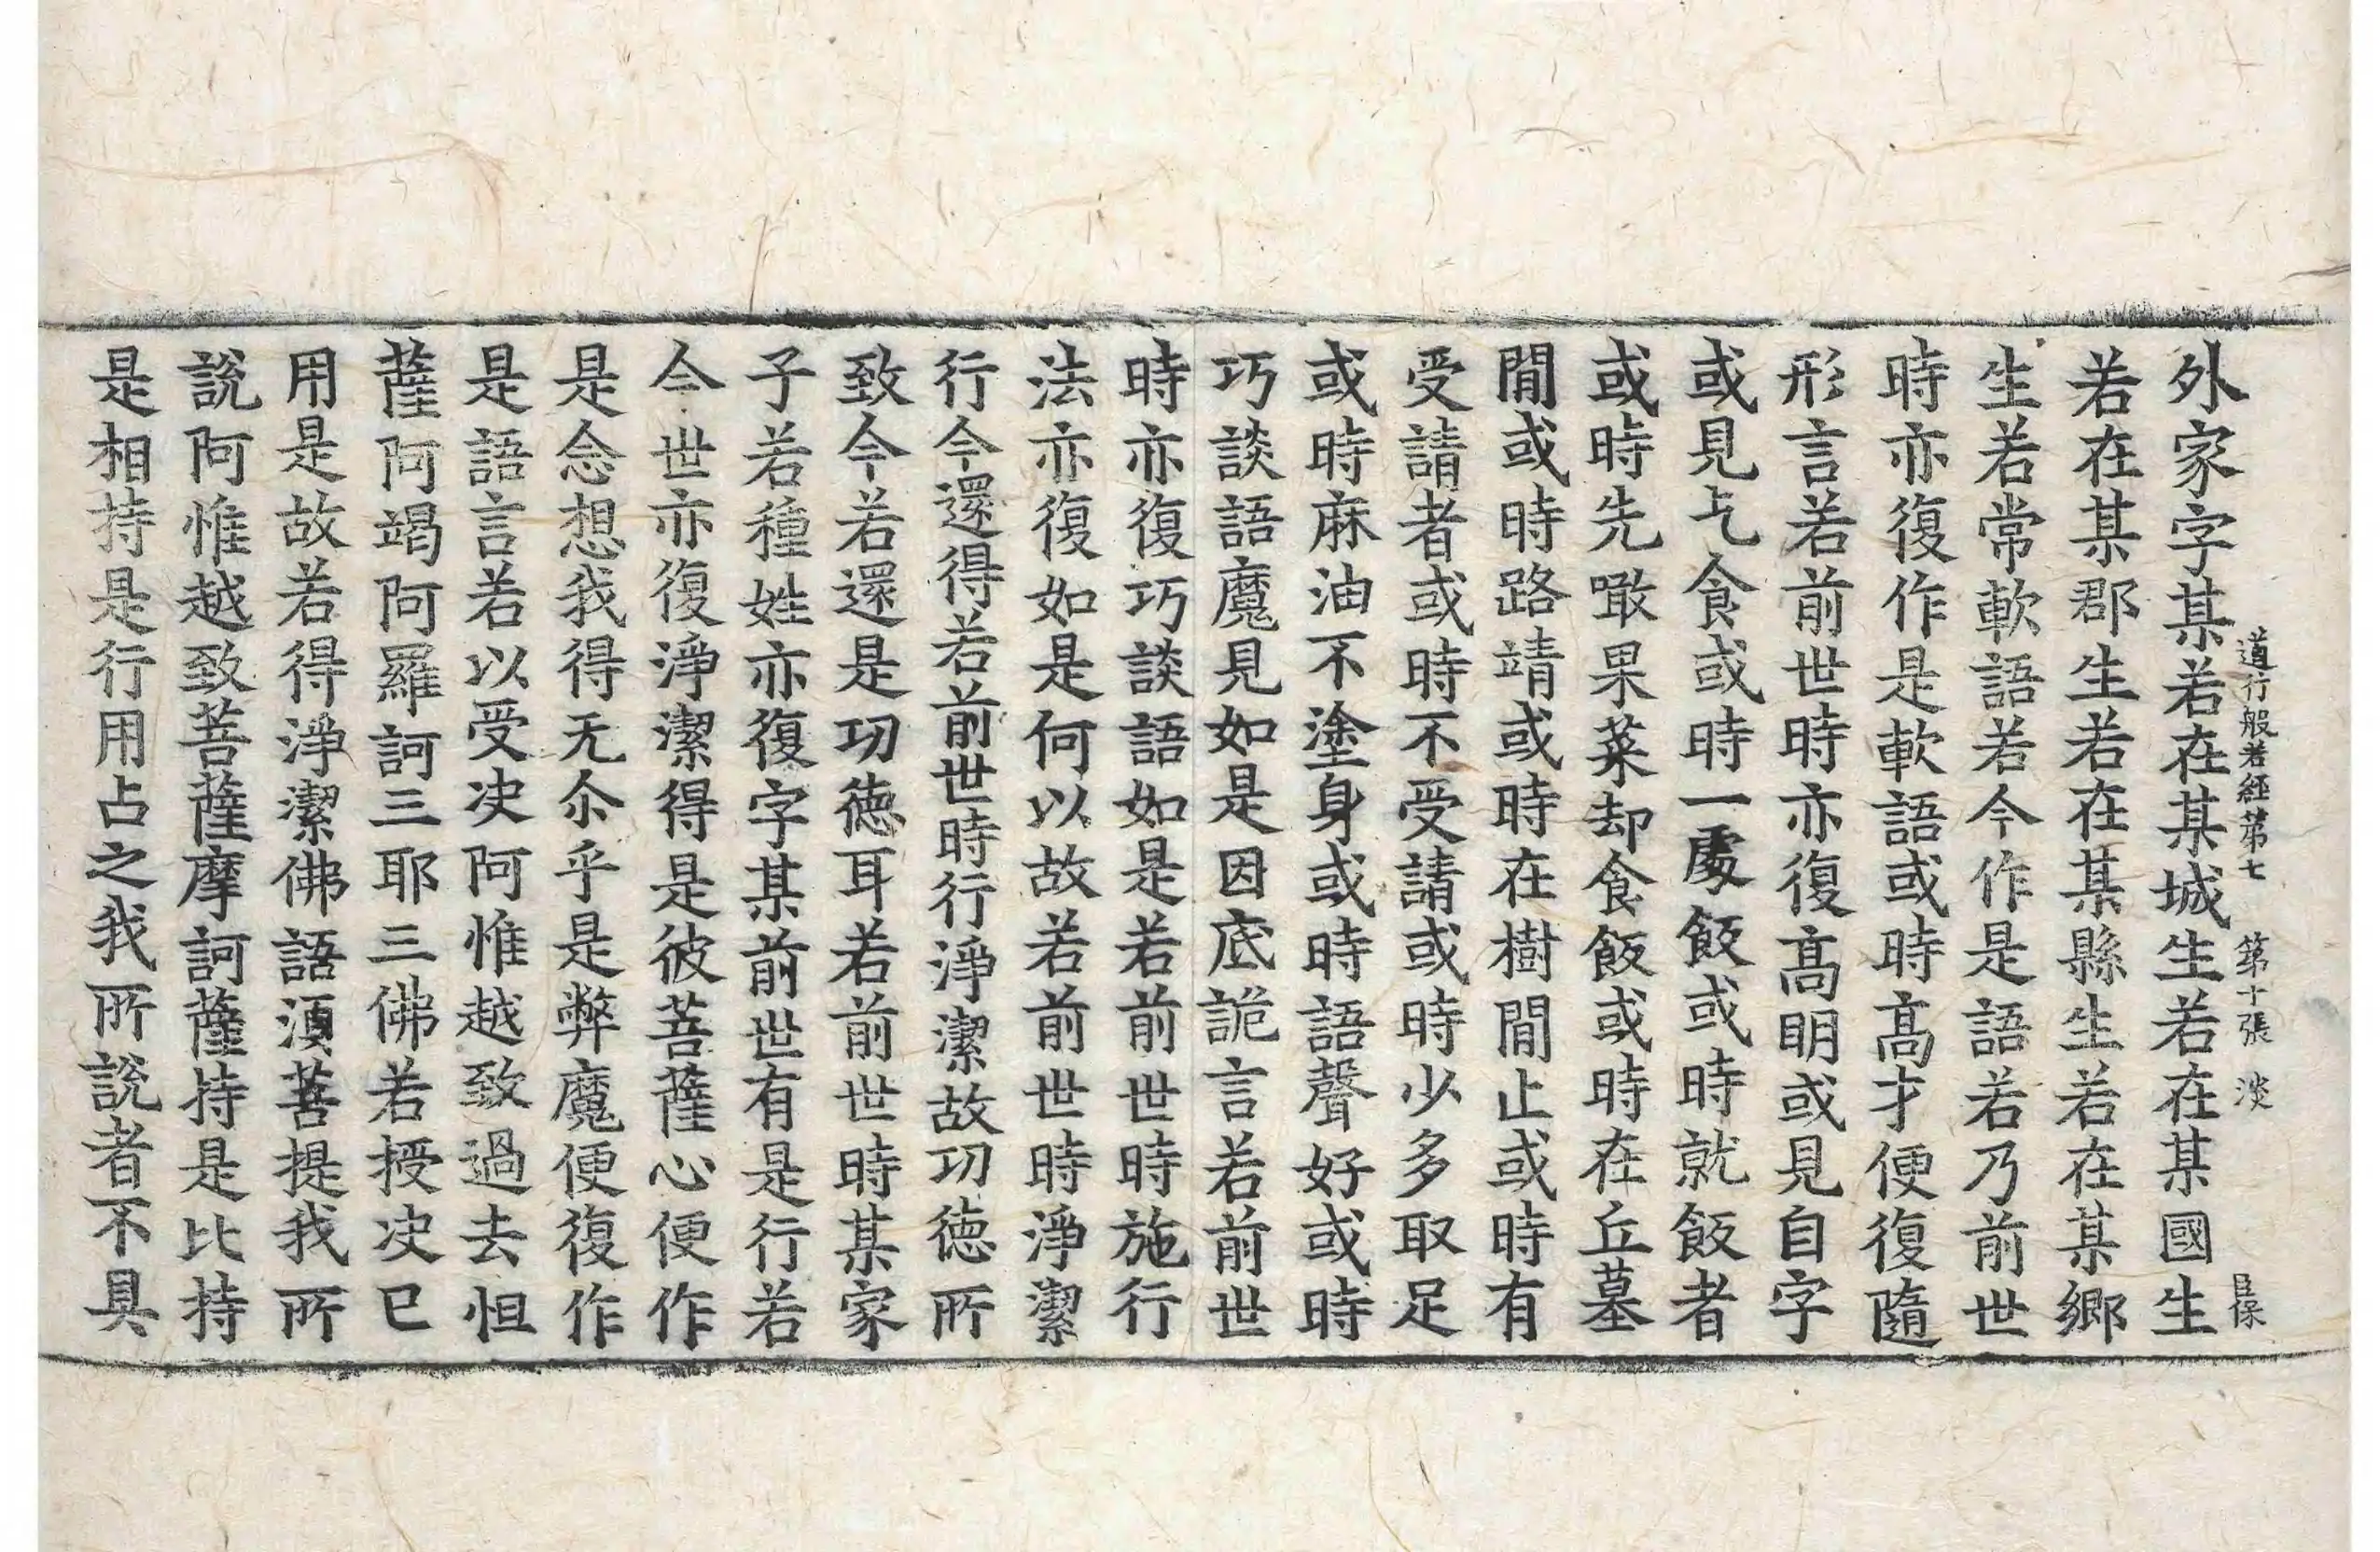 道行般若經第七 第十張 淡
外家字某若在某城生若在某國生
若在某郡生若在某縣生若在某鄉
生若常軟語若今作是語若乃前世
時亦復作是軟語或時高才便復隨
形言若前世時亦復高明或見自字
或見乞食或時一處飯或時就飯者
或時先噉果菜却食飯或時在丘墓
閒或時路靖或時在樹閒止或時有
受請者或時不受請或時少多取足
或時麻油不塗身或時語聲好或時
巧談語魔見如是因底詭言若前世
時亦復巧談語如是若前世時施行
法亦復如是何以故若前世時淨潔
行今還得若前世時行淨潔故功德所
致今若還是功德耳若前世時某家
子若種姓亦復字某前世有是行若
今世亦復淨潔得是彼菩薩心便作
是念想我得无尒乎是弊魔便復作
是語言若以受决阿惟越致過去怛
薩阿竭阿羅訶三耶三佛若授决已
用是故若得淨潔佛語須菩提我所
說阿惟越致菩薩摩訶薩持是比持
是相持是行用占之我所說者不具